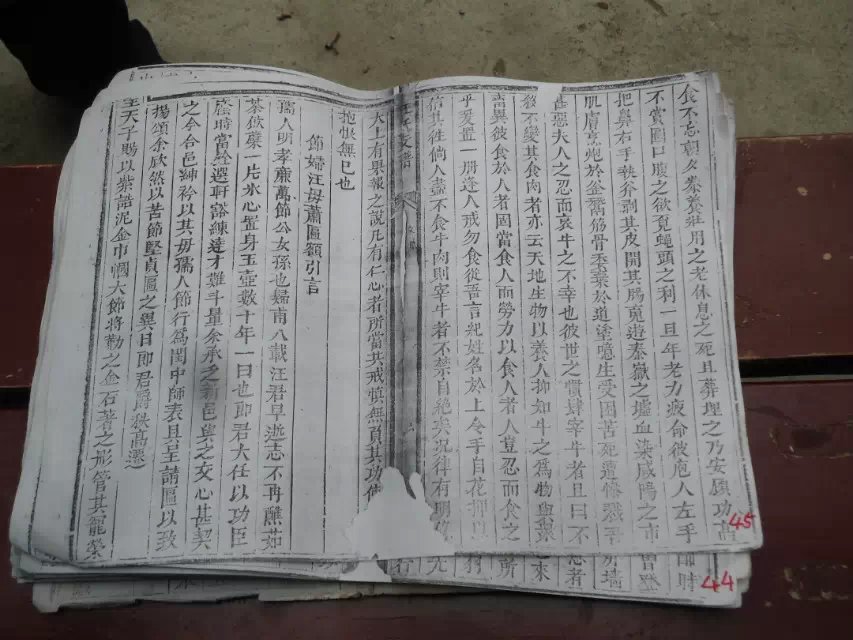 食不忘朝夕豢養壯用之老休息之死且葬埋之乃安厥功高
不賞圖口腹之欲覓蠅頭之利一旦年老力疲命彼庖人左手
把鼻右手執斧剥其皮開其腸竟遊泰嶽之墟血染咸陽之市
肌膚烹炮於釜鬵筋骨委棄於道塗噫生受困苦死遭慘戮
甚惡夫人之忍而哀牛之不幸也彼世之慣肆宰牛者且曰不
殺不變其食肉者亦云天地生物以養人抑知牛之爲物與
畜異彼食於人者固當食人而勞力以食人者人豈忍而食之
乎爰置一册逢人戒勿食從吾言紀姓名於上令手自花押
信其徃倘人盡不食牛肉則宰牛者不禁自絶矣况律有明
大上有果報之說凡有仁心者所當共戒慎無負其功使
抱恨無已也
節婦汪母蕭匾額引言
孺人明孝廉萬節公女孫也歸甫八載汪君早逝志不再醮茹
荼飲蘗一片氷心置身玉壺數十年一日也即君大任以功臣
蔭時當銓選軒豁練達才難斗量余承之新邑與之交心甚契
之今合邑紳衿以其母孺人節行爲閫中師表且呈請匾以致
揚頌余欣然以苦節堅貞匾之異日即君爵秩高遷
王天子賜以紫誥泥金巾幗大節將勒之金石著之彤管其寵榮
45
44